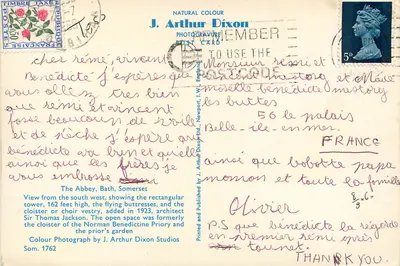 NATURAL COLOUR
J. Arthur Dixon
PHOTOGRAVURE
POST CARD
REMEMBER
TO USE THE
POSTCODE
cher rémi, vincent
Benedicte j'espère que
vous allez très bien
que rémi et vincent
fosse beaucoup de voile
et de pêche j'espère que
bénédicte va bien et qu'elle
ainsi que les frères je
vous embrasse
The Abbey, Bath, Somerset
View from the south west, showing the rectangular
tower, 162 feet high, the flying buttresses, and the
cloister or choir vestry, added in 1923, architect
Sir Thomas Jackson. The open space was formerly
the cloister of the Norman Benedictine Priory and
the prior's garden
Colour Photograph by J. Arthur Dixon Studios
Som. 1762
Printed and Published by J. Arthur Dixon Ltd., Newport, I.W.
Monsieur rémi et
et Made
moiselle bénédicte
les buttes
50 le palais
Belle-ile-en mer
FRANCE
ainsi que bobotte papa
maman et toute la famille
Olivier
P.S que bénédicte la regarde
en premier rémi après
THANK YOU.
5P
TIMBRE TAXE